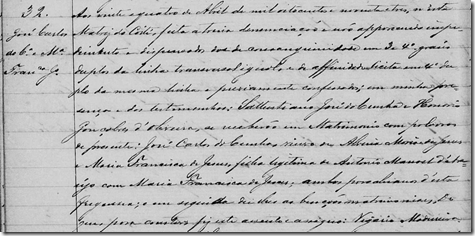 32.
José Carlos
de Cª. Mª
Franca J.
Aos vinte e quatro de Abril de mil oitocentos e noventa e tres, n'esta
Matriz do feita a trina denunciação e não apparecendo impe
dimento e dispensados dos de consanguinidade em 3. 4º grau
duplos da linha transversal igual e de affinidade licita em 4º du
plo da mesma linha e previamente confessados; em minha pre
sença e das testemunhas: José da Cunha e Honorio
Gonçalves d'Oliveira, se receberão em Matrimonio por palavras
de presente: José Carlos da Cunha viuvo de Maria de Jesus
e Maria Francisca de Jesus, filha legitima de Antonio Manoel d'A
com Maria Francisca de Jesus; ambos parochianos d'esta
freguesia; e em seguida dei lhes as bençãos matrimoniaes; E
para constar fiz este assento e assigno: Vigario